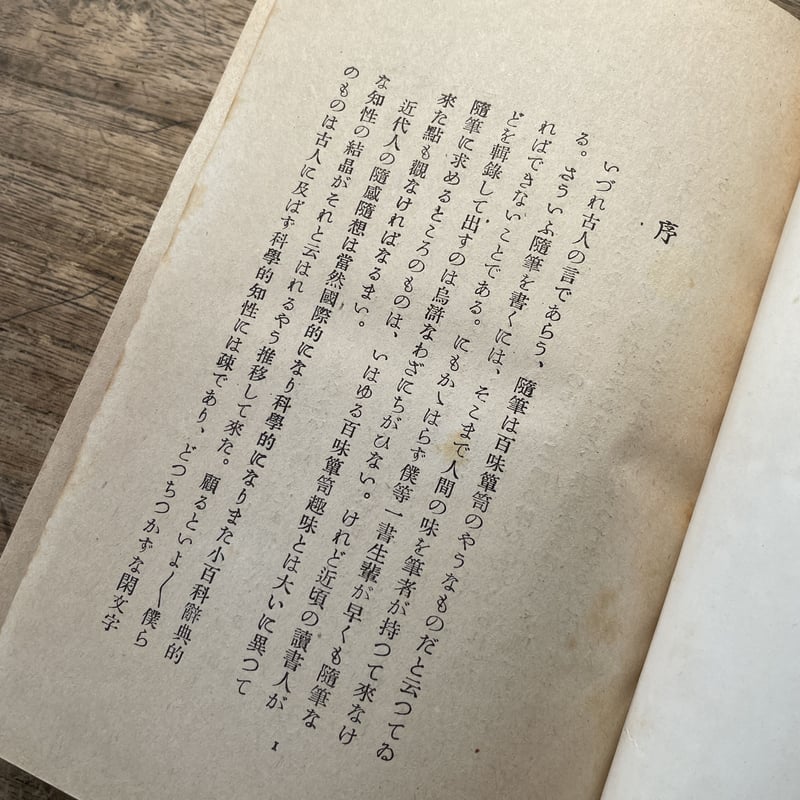 序
いづれ古人の言であらう、隨筆は百味簞笥のやうなものだと云つてゐ
る。さういふ隨筆を書くには、そこまで人間の味を筆者が持つて來なけ
ればできないことである。にもかゝはらず僕等一書生輩が早くも隨筆な
どを輯錄して出すのは烏滸なわざにちがひない。けれど近頃の讀書人が
隨筆に求めるところのものは、いはゆる百味簞笥趣味とは大いに異つて
來た點も觀なければなるまい。
近代人の隨感隨想は當然國際的になり科學的になりまた小百科辭典的
な知性の結晶がそれと云はれるやう推移して來た。顧るといよ〱僕ら
のものは古人に及ばず科學的知性には疎であり、どつちつかずな閑文字
1